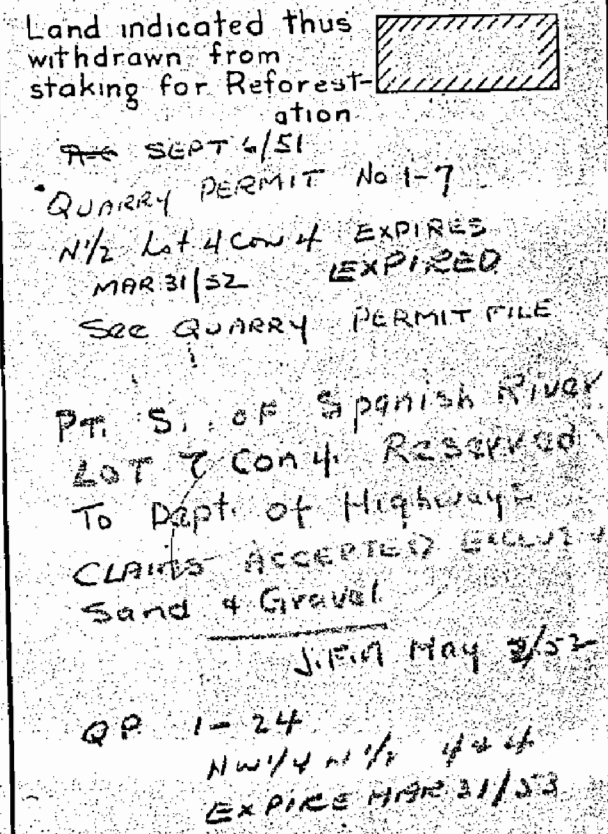 Land indicated thus
withdrawn from
staking for Reforest-
ation
SEPT 6/51
QUARRY PERMIT No 1-7
N1/2 Lot 4 Con 4 EXPIRES
MAR 31/52 EXPIRED
See QUARRY PERMIT FILE
PT. S. OF Spanish River
LOT 7 Con 4. Reserved
To Dept. of Highways
CLAIMS ACCEPTED
Sand & Gravel
J.F.M May 2/52
QP 1-24
NW1/4 N1/2 4 & 4
EXPIRE MAR 31/53